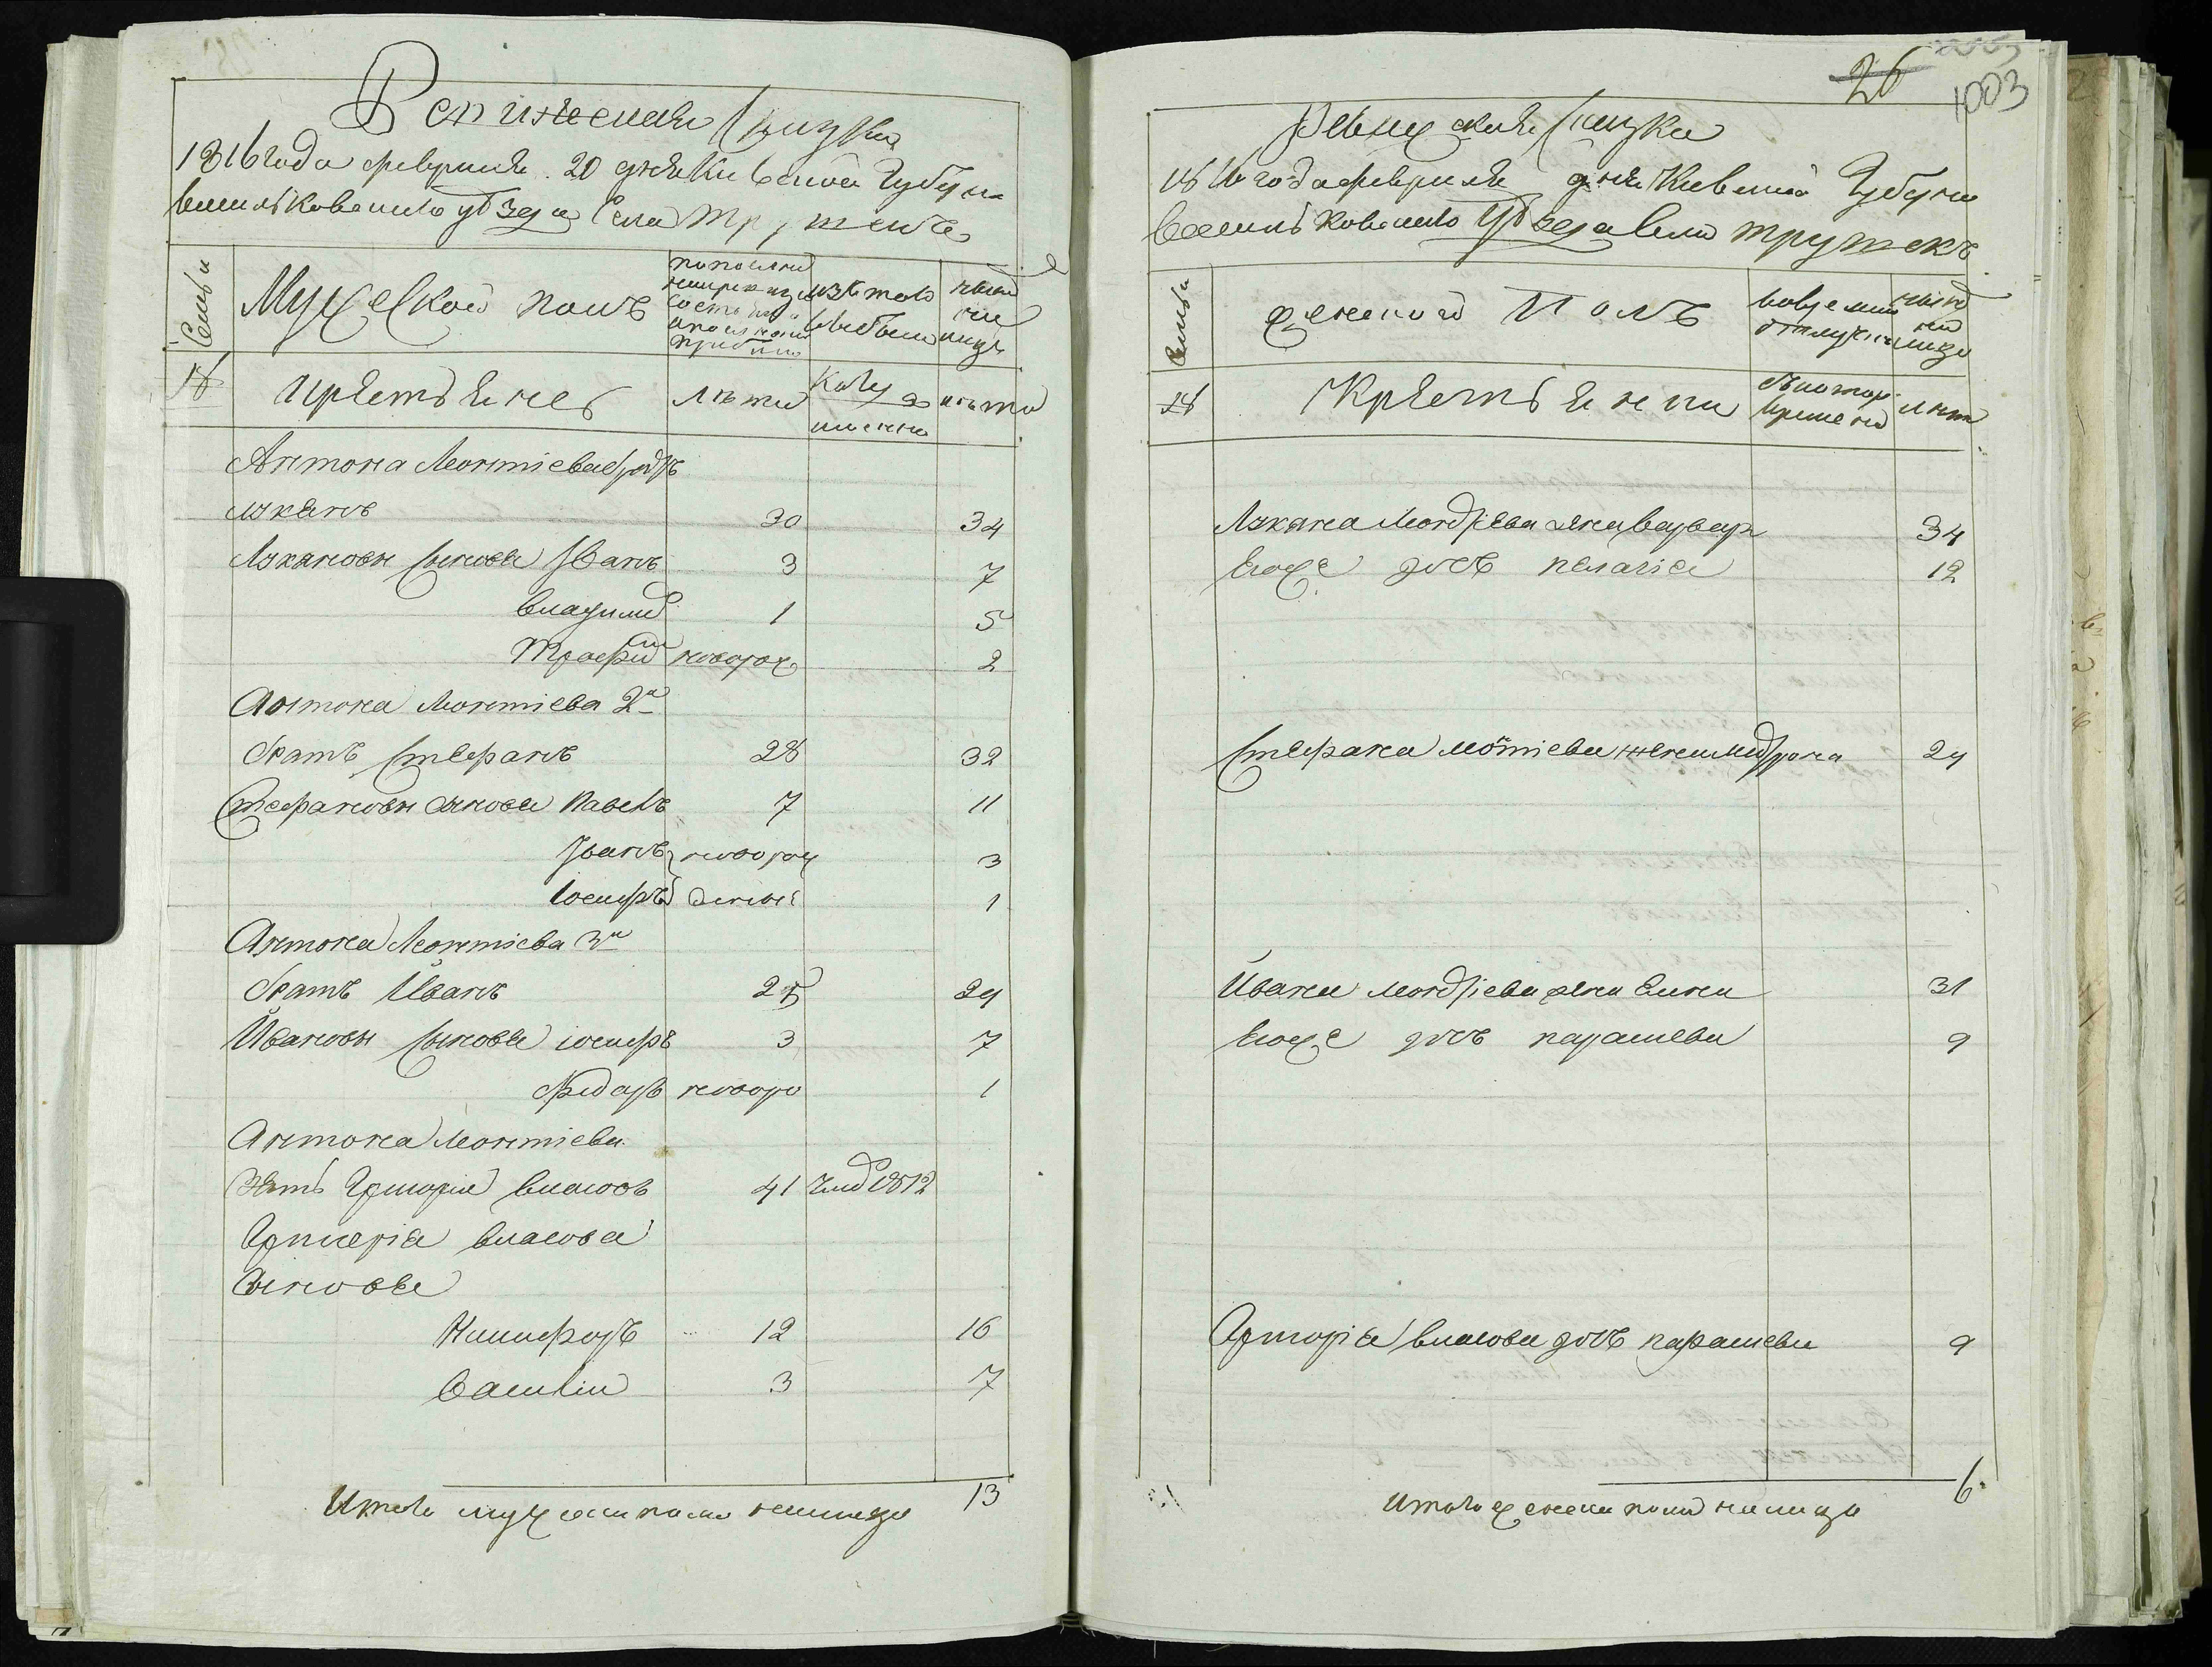 Ревижская сказка
1816 года февраля 20 дня Киевской Губерн
васильковского уезда Села Трушекъ
Семьи
Мужеской полъ
по последней
ревизии
состояло и
после того
прибыло
изъ того
выбыло
ныне
на
лицо
18
Крестьяне
Лета
Когда
именно
лета
Антона Леонтіева братъ
Лукянъ 30 34
Лукяновы сыновья Іванъ 3 7
Владимѣ 1 5
Трофим новорож 2
Антона Леонтіева 2й
братъ Стефанъ 28 32
Стефановы сыновья Павелъ 7 11
Іванъ новорож 3
Іосифъ денные 1
Антона Леонтіева 3й
братъ Йванъ 25 29
Йвановы сыновья іосифъ 3 7
Федоръ новоро 1
Антона Леонтіева
Зять Григорій власовъ 41 Умѣ 1812
Григорія власова
Сыновья
Никифоръ 12 16
Василій 3 7
Итого мужеска пола налицо 13
26
1003
Ревижская сказка
1816 года февраля дня Киевской Губерни
васильковского уезда села трушекъ
Семьи
женской Полъ
во временной
отлучке
ныне
на
лицо
18
Крестьянки
съ котор
времени
лет
Лукяна Леонтіева жена варвар 34
Егоже дочь пелагія 12
Стефана леонтіева жена Матрона 29
Йвана Леонтіева жена Елена 31
Егоже дочь парасковя 9
Григорія власова дочь парасковя 9
Итого женска пола налицо 6